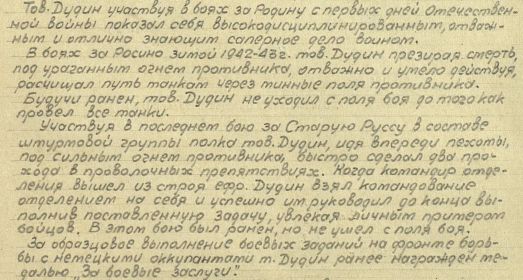 Тов. Дудин участвуя в боях за Родину с первых дней Отечествен-
ной войны показал себя высокодисциплинированным, отваж-
ным и отлично знающим саперное дело воином.
В боях за Росино зимой 1942-43г. тов. Дудин презирая смерть,
под ураганным огнем противника, отважно и умело действуя,
расчищал путь танкам через минные поля противника.
Будучи ранен, тов. Дудин не уходил с поля боя до того как
провел все танки.
Участвуя в последнем бою за Старую Руссу в составе
штурмовой группы полка тов. Дудин, идя впереди пехоты,
под сильным огнем противника, быстро сделал два про-
хода в проволочных препятствиях. Когда командир отде-
ления вышел из строя ефр. Дудин взял командование
отделением на себя и успешно им руководил до конца вы-
полнив поставленную задачу, увлекая личным примером
бойцов. В этом бою был ранен, но не ушел с поля боя.
За образцовое выполнение боевых заданий на фронте борь-
бы с немецкими оккупантами т. Дудин ранее награжден ме-
далью „За боевые заслуги".